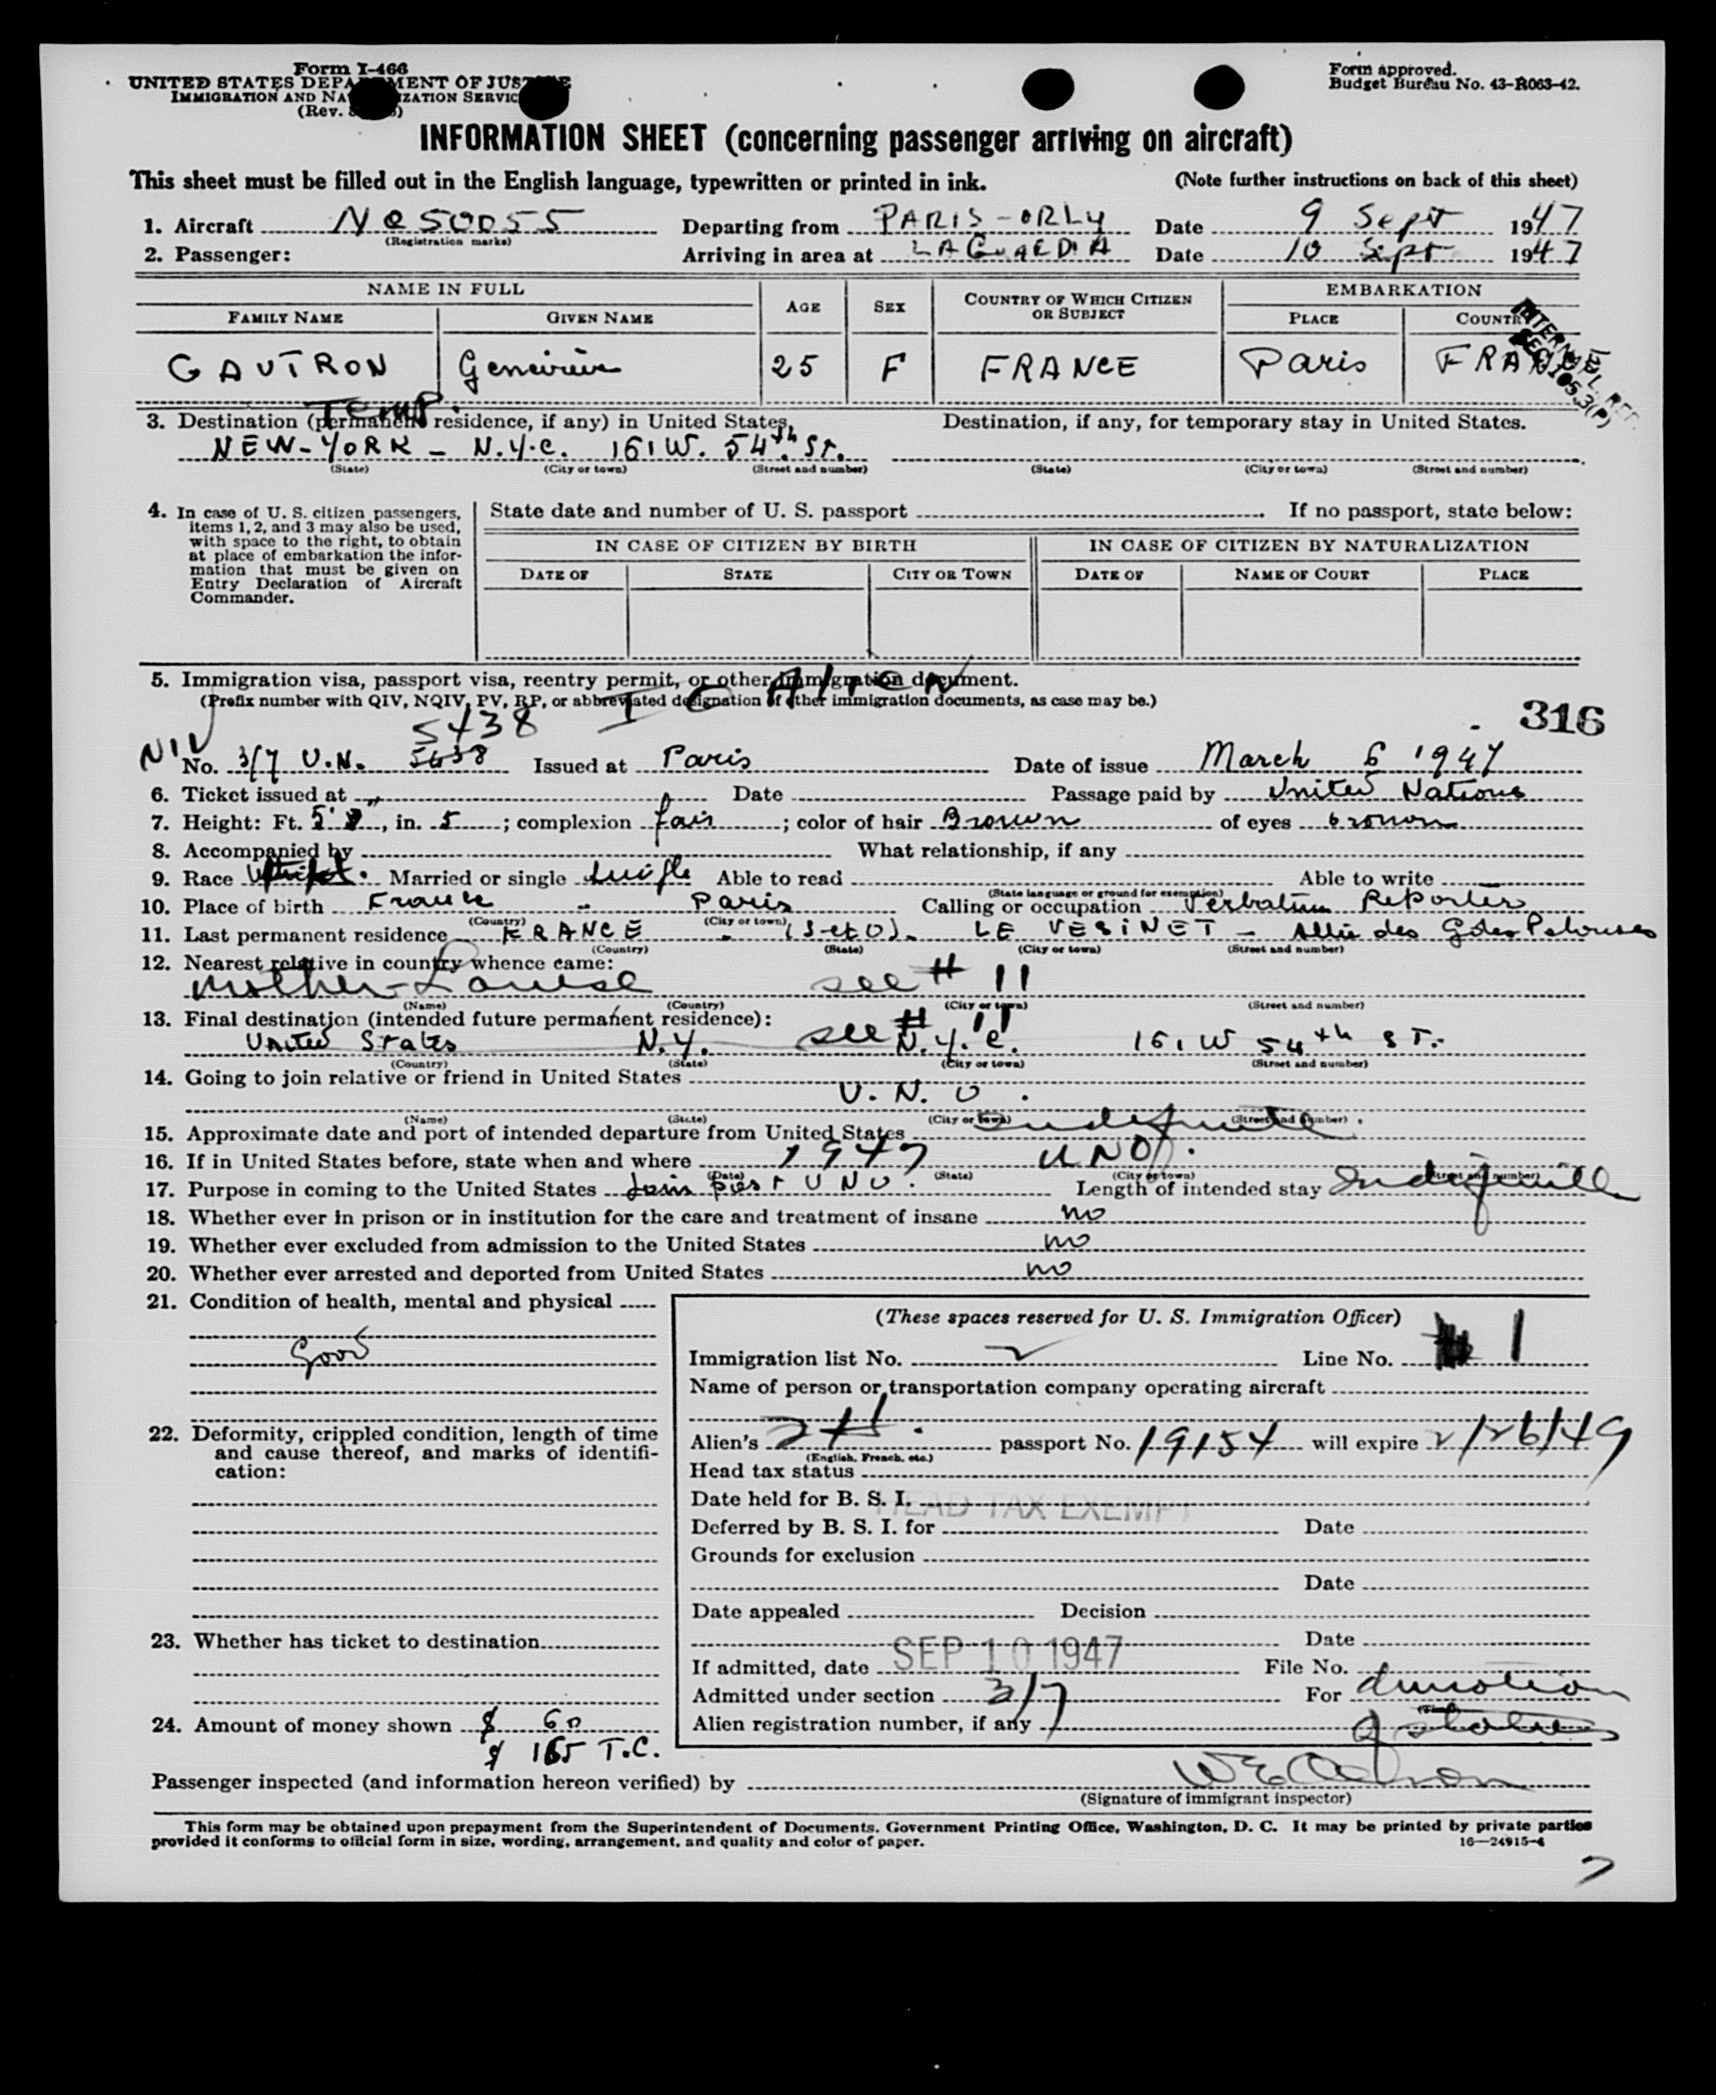 Form I-466
UNITED STATES DEPARTMENT OF JUSTICE
IMMIGRATION AND NATURALIZATION SERVICE
(Rev.
Form approved.
Budget Bureau No. 43-R063-42.
INFORMATION SHEET (concerning passenger arriving on aircraft)
This sheet must be filled out in the English language, typewritten or printed in ink. (Note further instructions on back of this sheet)
1. Aircraft NC50055 Departing from PARIS-ORLY Date 9 Sept 1947
(Registration marks)
2. Passenger: Arriving in area at LAGUARDIA Date 10 Sept 1947
NAME IN FULL AGE SEX COUNTRY OF WHICH CITIZEN OR SUBJECT EMBARKATION
FAMILY NAME GIVEN NAME PLACE COUNTRY
GAUTRON Geneviève 25 F FRANCE Paris FRANCE
Temp.
3. Destination (permanent residence, if any) in United States, Destination, if any, for temporary stay in United States.
NEW-YORK - N.Y.C. 161 W. 54th St.
(State) (City or town) (Street and number) (State) (City or town) (Street and number)
4. In case of U. S. citizen passengers, items 1, 2, and 3 may also be used, with space to the right, to obtain at place of embarkation the information that must be given on Entry Declaration of Aircraft Commander.
State date and number of U. S. passport If no passport, state below:
IN CASE OF CITIZEN BY BIRTH IN CASE OF CITIZEN BY NATURALIZATION
DATE OF STATE CITY OR TOWN DATE OF NAME OF COURT PLACE
5. Immigration visa, passport visa, reentry permit, or other immigration document.
(Prefix number with QIV, NQIV, PV, RP, or abbreviated designation of other immigration documents, as case may be.)
Alien
316
5438
NIV
No. 3/7 U.N. 5638 Issued at Paris Date of issue March 6 1947
6. Ticket issued at Date Passage paid by United Nations
7. Height: Ft. 5', in. 5; complexion fair; color of hair Brown of eyes brown
8. Accompanied by What relationship, if any
9. Race Married or single Single Able to read Able to write
(State language or ground for exemption)
10. Place of birth France - Paris Calling or occupation Verbatim Reporter
(Country) (City or town)
11. Last permanent residence FRANCE (S-et O). LE VESINET -
(Country) (State) (City or town) (Street and number)
12. Nearest relative in country whence came:
Mother - Louise see # 11
(Name) (Country) (City or town) (Street and number)
13. Final destination (intended future permanent residence):
see # 11
United States N.Y. N.Y.C. 161 W 54th ST.
(Country) (State) (City or town) (Street and number)
14. Going to join relative or friend in United States
U.N.O.
(Name) (State) (City or town) (Street and number)
15. Approximate date and port of intended departure from United States Indefinite
16. If in United States before, state when and where 1947 UNO.
(Date) (State) (City or town) (Street and number)
17. Purpose in coming to the United States Join post UNO. Length of intended stay Indefinite
18. Whether ever in prison or in institution for the care and treatment of insane no
19. Whether ever excluded from admission to the United States no
20. Whether ever arrested and deported from United States no
21. Condition of health, mental and physical
Good
22. Deformity, crippled condition, length of time and cause thereof, and marks of identification:
23. Whether has ticket to destination
24. Amount of money shown $ 60
$ 165 T.C.
(These spaces reserved for U. S. Immigration Officer)
Immigration list No. Line No. 1
Name of person or transportation company operating aircraft
Alien's passport No. 19154 will expire 2/26/49
(English, French, etc.)
Head tax status
HEAD TAX EXEMPT
Date held for B. S. I.
Deferred by B. S. I. for Date
Grounds for exclusion
Date
Date appealed Decision
Date
If admitted, date SEP 10 1947 File No.
Admitted under section 3/7 For duration
Alien registration number, if any of status
Passenger inspected (and information hereon verified) by
(Signature of immigrant inspector)
This form may be obtained upon prepayment from the Superintendent of Documents, Government Printing Office, Washington, D. C. It may be printed by private parties
provided it conforms to official form in size, wording, arrangement, and quality and color of paper. 16—24915-4